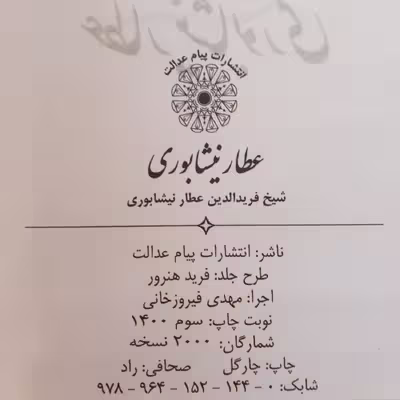 عطار نیشابوری
انتشارات پیام عدالت
عطار نیشابوری
شیخ فریدالدین عطار نیشابوری
ناشر: انتشارات پیام عدالت
طرح جلد: فرید هنرور
اجرا: مهدی فیروزخانی
نوبت چاپ: سوم ۱۴۰۰
شمارگان: ۲۰۰۰ نسخه
چاپ: چارگل صحافی: راد
شابک: ۰ - ۱۴۴ - ۱۵۲ - ۹۶۴ - ۹۷۸